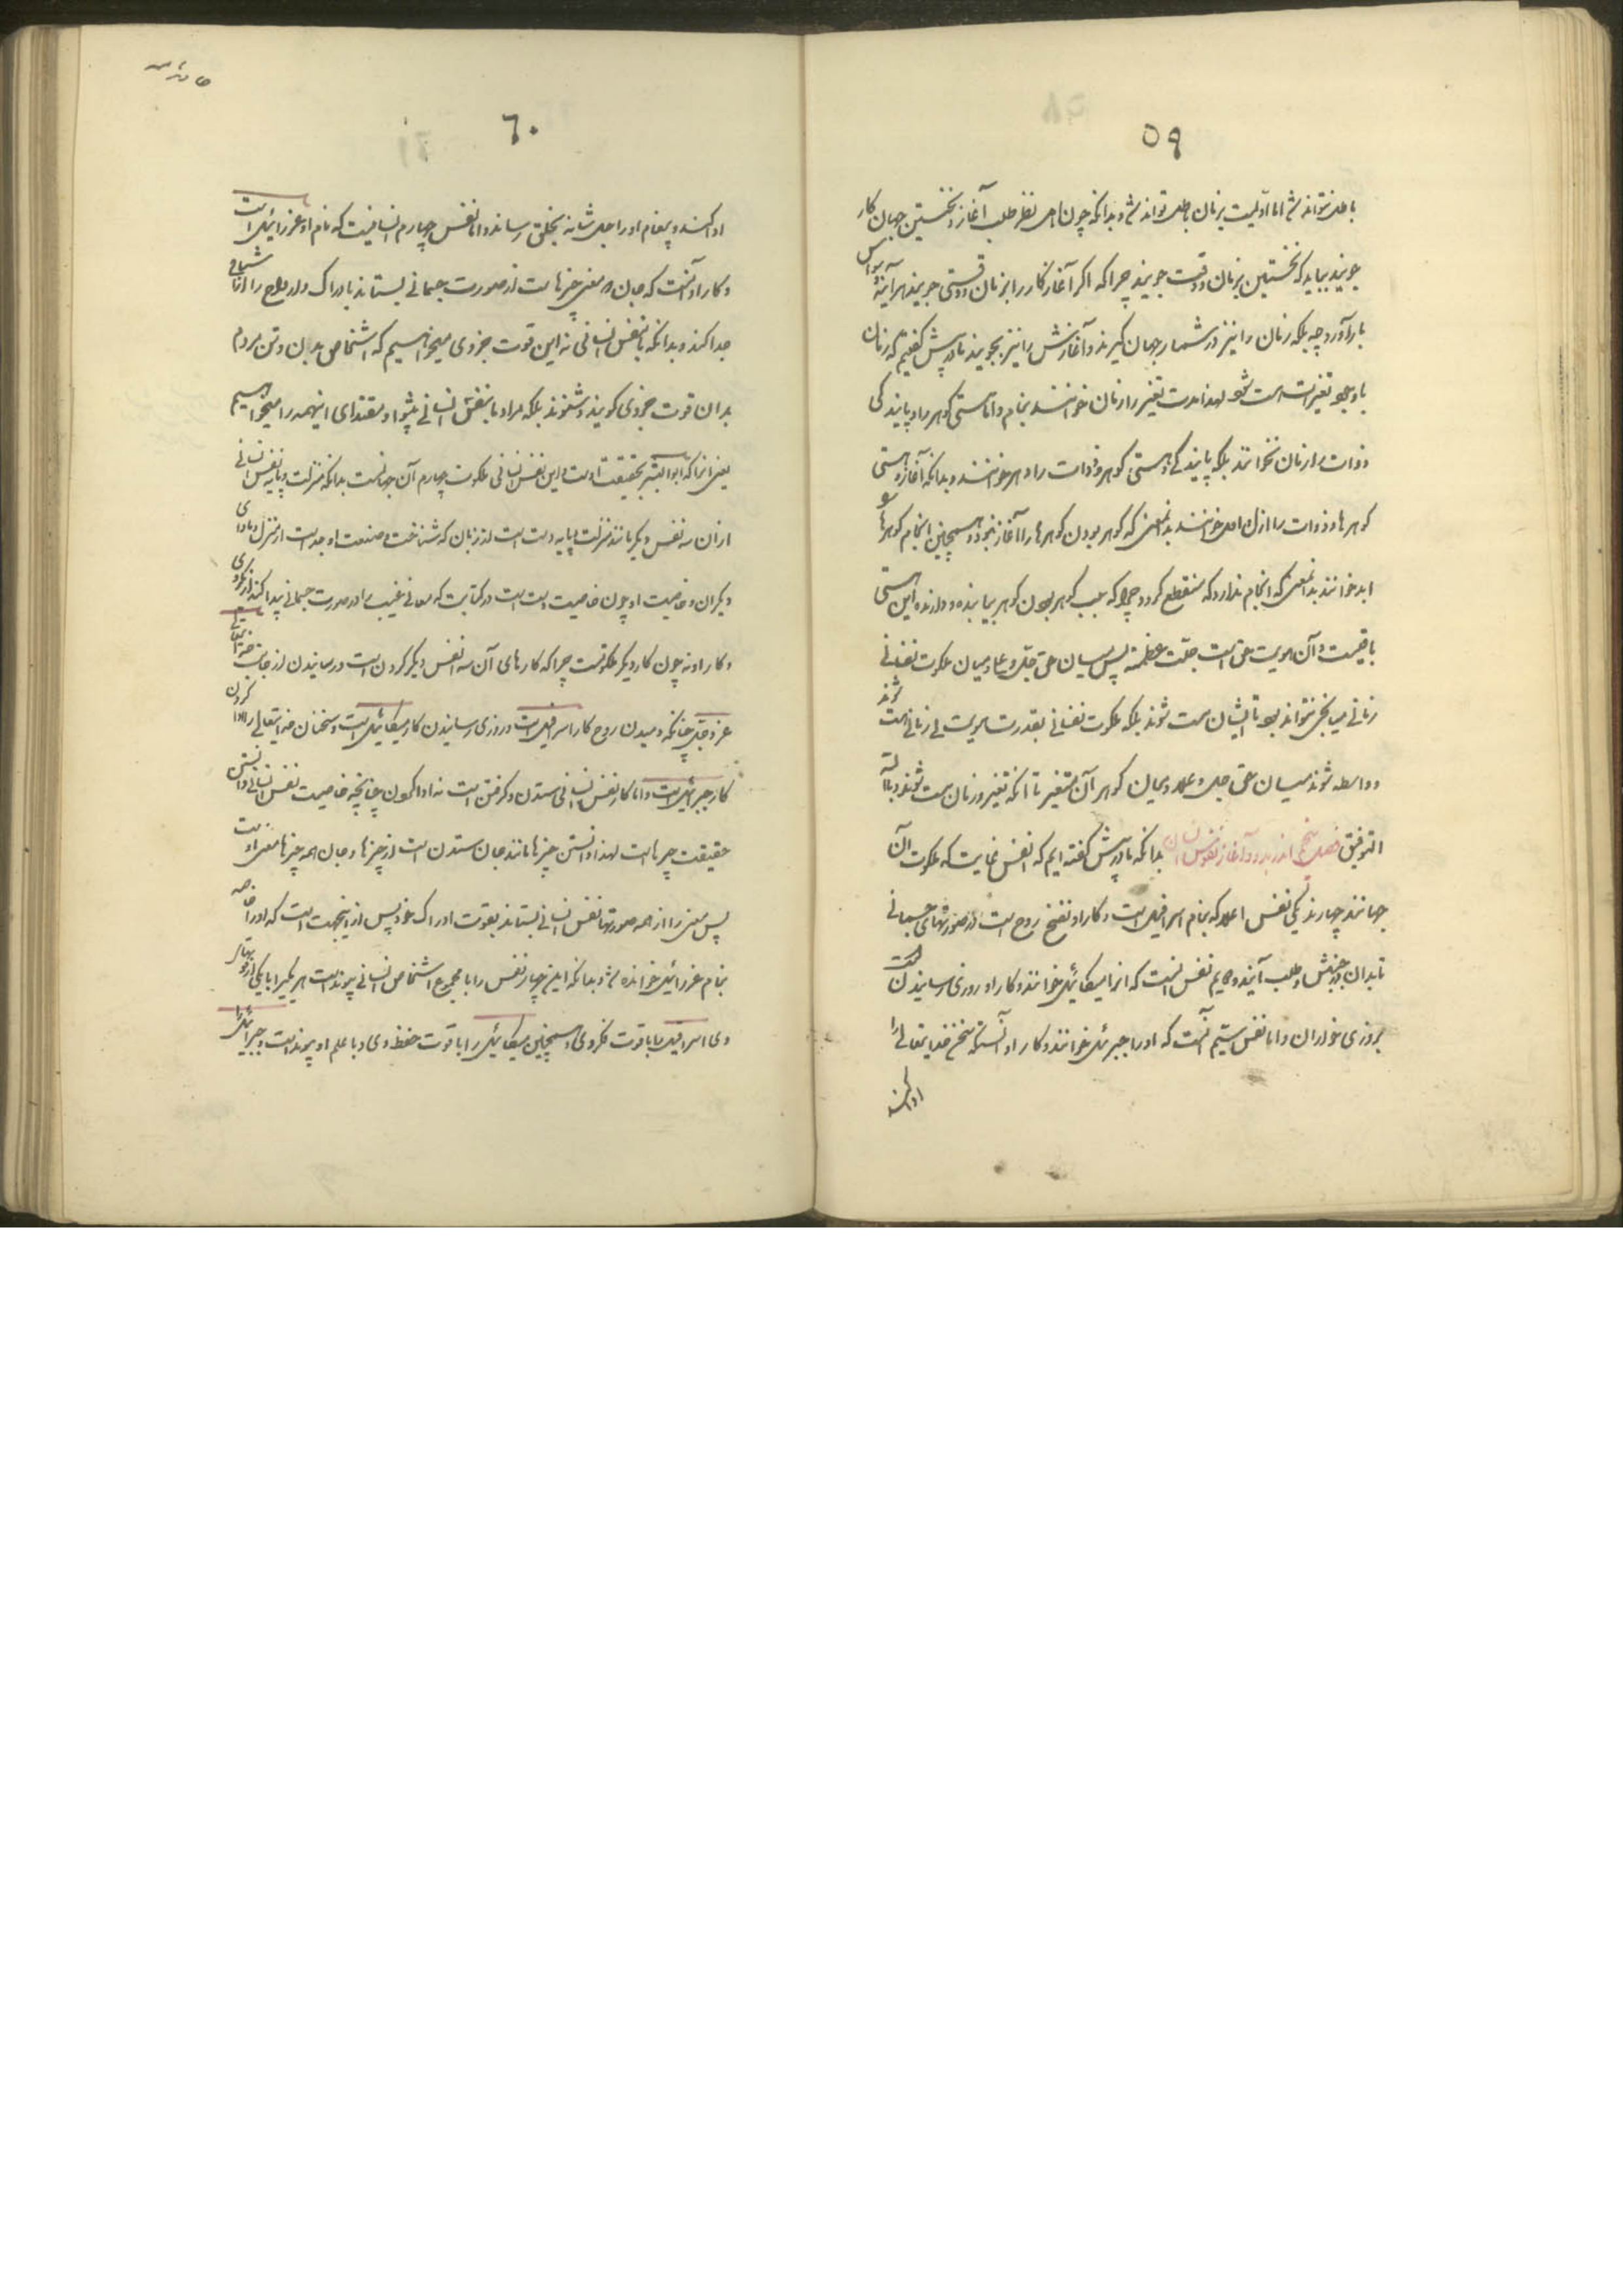 ۵۹
باطل نتواند شد اما اولیت بزمان باطل تواند شد و بدانکه چون اهل نظر طلب آغاز و نخستین جهان کار
جویند بباید که نخستین بزمان و وقت جویند چرا که اگر آغاز کار را بزمان و وقتی جویند هرآینه
بار آورد چه بلکه زمان را نیز در شمار جهان گیرند و آغازش را نیز بجویند ما در پیش گفتیم که زمان
با وجود تغیرست شود لهذا مدت تغیر را زمان خوانند بنام و اما هستی گوهر را و پایندگی
ذوات را زمان نخوانند بلکه پایندگی و هستی گوهر و ذات را دهر خوانند و بدانکه آغاز و هستی
گوهرها و ذوات را ازل خوانند بدان معنی که گوهر بودن گوهرها را آغاز نبود و همچنین انجام گوهرها
ابد خوانند بدان معنی که انجام ندارد که منقطع گردد چرا که سبب گوهر بودن گوهر پاینده و دارنده این هستی
باقیست و آن هویت حق است جلت عظمته پس میان حق جل و علا و میان ملکوت نفسانی
زمانی میانجی نتواند بود تا ایشان هست شوند بلکه ملکوت نفسانی بقدرت هویت بی زمانی هست شوند
و واسطه شوند میان حق جل و علا و میان گوهر آن متغیر تا آنکه تغیر و زمان هست شوند و بالله
التوفیق فصل پنجم اندر بدو و آغاز نفوس انسان بدانکه ما در پیش گفته ایم که نفس نمایست که ملکوت آن
جهانند چهارند یکی نفس اعلا که بنام اسرافیل است و کار او نفخ روح است در صورتهای جسمانی
تا بدان در جنبش و طلب آیند دویم نفس است که انرا میکائیل خوانند و کار او روزی رسانیدن است
بروزی خواران و اما نفس سیم آنست که او را جبرئیل خوانند و کار او آنست که سخن خدایتعالی را
ادا کند
۶۰
ادا کند و پیغام او را جل شانه بخلق رساند و اما نفس چهارم انسانیت که نام او عزرائیل است
و کار او آنست که جان و معنی چیزهاست از صورت جسمانی بستاند بادراک و ارواح را از اشباح
جدا کند و بدانکه ما بنفس انسانی نه این قوت جزوی میخواهیم که اشخاص بدان و تن مردم
بدان قوت جزوی گویند و شنوند بلکه مراد ما بنفس انسانی پیشوا و مقتدای اینهمه را میخواهیم
یعنی انرا که ابوالبشر بحقیقت اوست و این نفس انسانی ملکوت چهارم آن جهانست بدانکه منزلت و پایه نفس انسانی
از ان سه نفس دیگر مانند منزلت و پایه دست است از زبان که شناخت و صنعت او جداست از منزل و ماوای
دیگران و خاصیت او چون خاصیت دست است در کتابت که معانی غیب را در صورت جسمانی پیدا کند
و کار او نه چون کار دیگر ملکوتست چرا که کارهای آن سه نفس دیگر کردن است و رسانیدن از جانب خدایتعالی
عز و جل چنانکه دمیدن روح کار اسرافیل است و روزی رسانیدن کار میکائیل است و سخنان خدایتعالی را ادا کردن
کار جبرئیل است و اما کار نفس انسانی ستدن و گرفتن است نه ادا کردن چنانچه خاصیت نفس انسانی دانستن
حقیقت چیزهاست لهذا دانستن چیزها مانند جان ستدن است از چیزها و جان همه چیزها معنی اوست
پس معنی را از همه صورتها نفس انسانی بستاند بقوت ادراک خود پس از اینجهت است که او را خاصه
بنام عزرائیل خوانده شد و بدانکه این چهار نفس را با مجموع اشخاص انسانی پیوند است هر یکی را با یکی از قوتهای
وی اسرافیل را با قوت فکر وی و همچنین میکائیل را با قوت حفظ وی و با علم او پیوند است و جبرائیل را